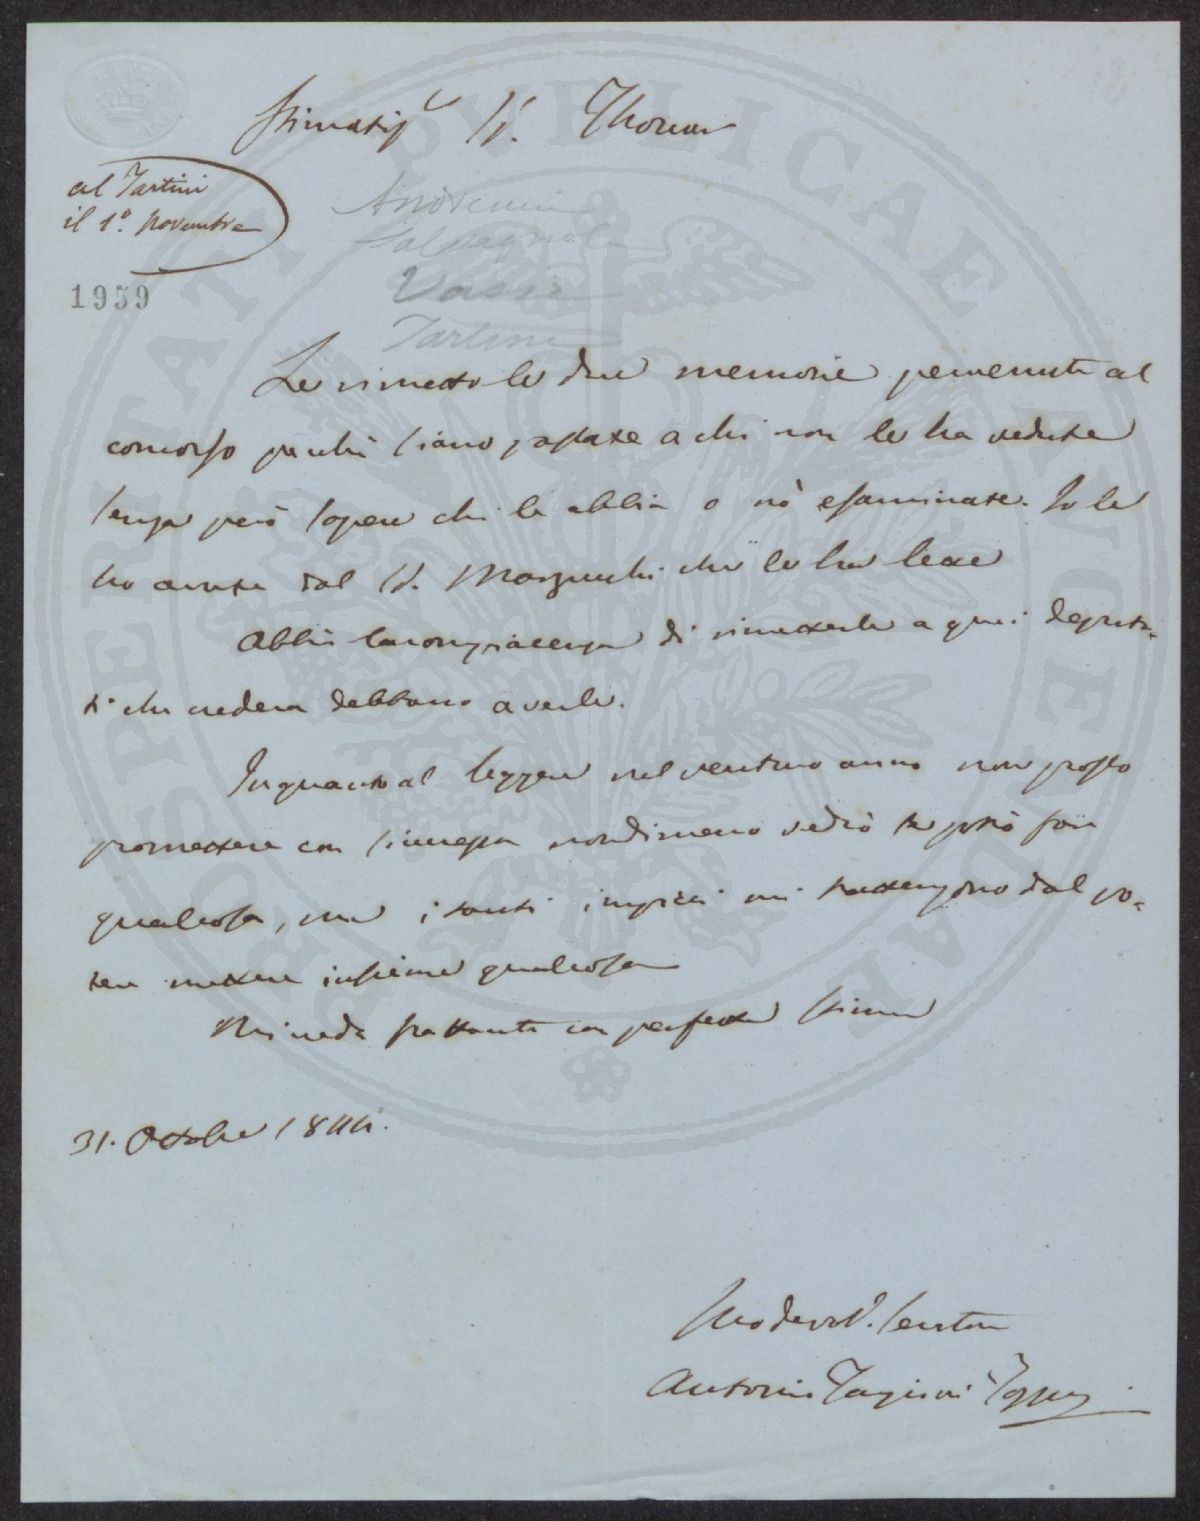 Stimatis.º Sig. Thouar
al Tartini
il 1º. Novembre
1959
Andreucci
Salvagnoli
Vasse
Tartini
Le rimetto le due memorie pervenute al
concorso perchè siano passate a chi non le ha vedute
senza però sapere chi le abbia o nò esaminate. Io le
ho avute dal Sig. che le ha lette
Abbia la compiacenza di rimetterle a quei deputa-
ti che crederà debbano averle.
In quanto al leggere nel venturo anno non posso
promettere con sicurezza nondimeno vedrò se potrò far
qualcosa, ma i tanti impicci mi trattengono dal po-
ter mettere insieme qualcosa
Mi creda frattanto con perfetta stima
31. Ottobre 1844.
Suo devot. servitore
Antonio Targioni Tozzetti
PROSPERITATI PVBLICAE AVGENDAE